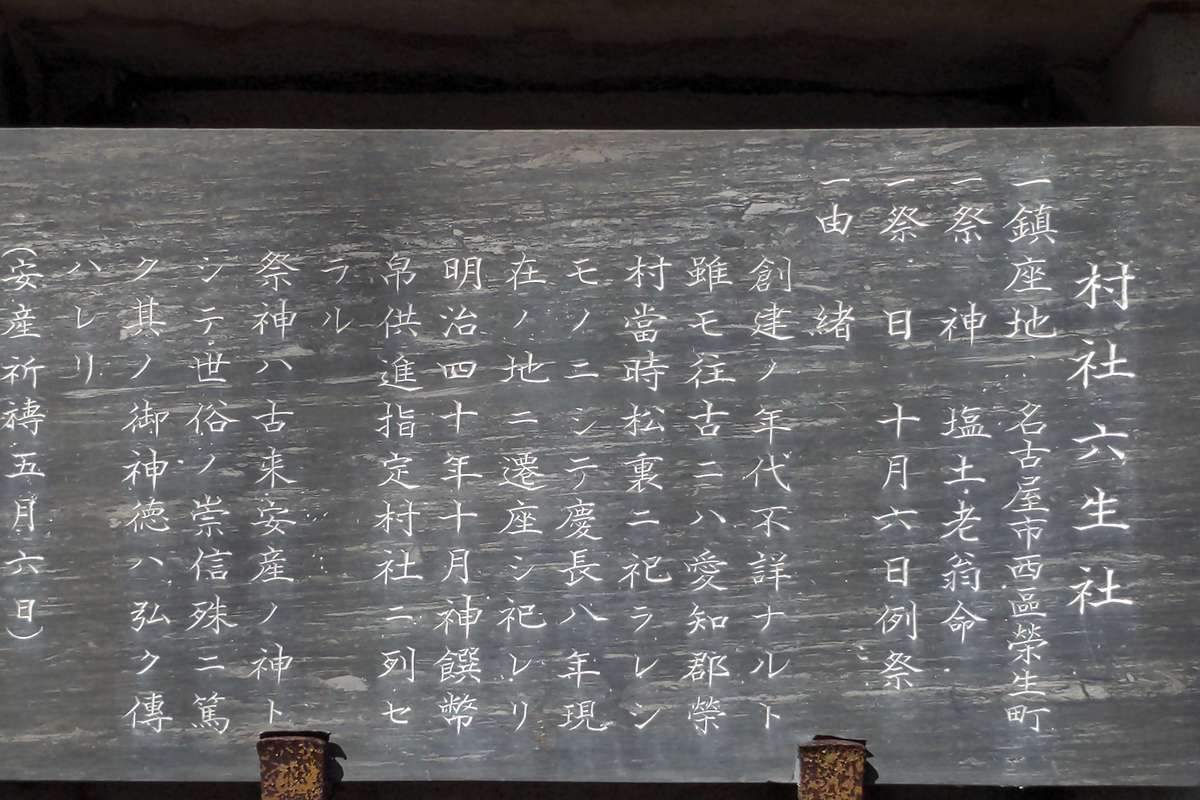 村社六生社
一鎮座地 名古屋市西區榮生町
一祭神 塩土老翁命
一祭日 十月六日例祭
一由緒
創建ノ年代不詳ナルト
雖モ往古ニハ愛知郡榮
村當時松裏ニ祀ラレシ
モノニシテ慶長八年現
在ノ地ニ遷座シ祀レリ
明治四十年十月神饌幣
帛供進指定村社ニ列セ
ラル
祭神ハ古来安産ノ神ト
シテ世俗ノ崇信殊ニ篤
ク其ノ御神徳ハ弘ク傳
ハレリ
(安産祈禱五月六日)